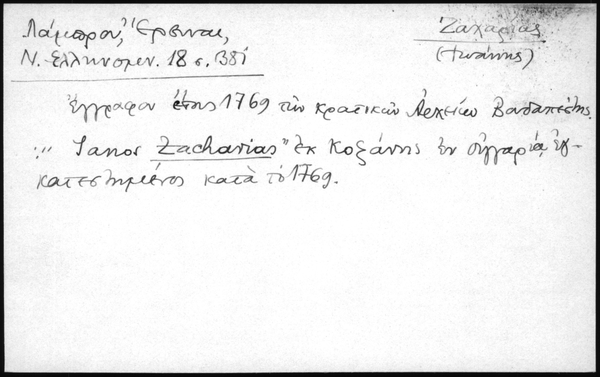 Λάμπρου, Ἔρευναι,
Ν. Ἑλληνομν. 18 σ. 381
Ζαχαρίας
(Ἰωάννης)
Ἔγγραφον ἔτους 1769 τῶν κρατικῶν Ἀρχείων Βουδαπέστης
: „ Ianos Zacharias" ἐκ Κοζάνης ἐν Οὑγγαρίᾳ ἐγ-
κατεστημένος κατὰ τὸ 1769.